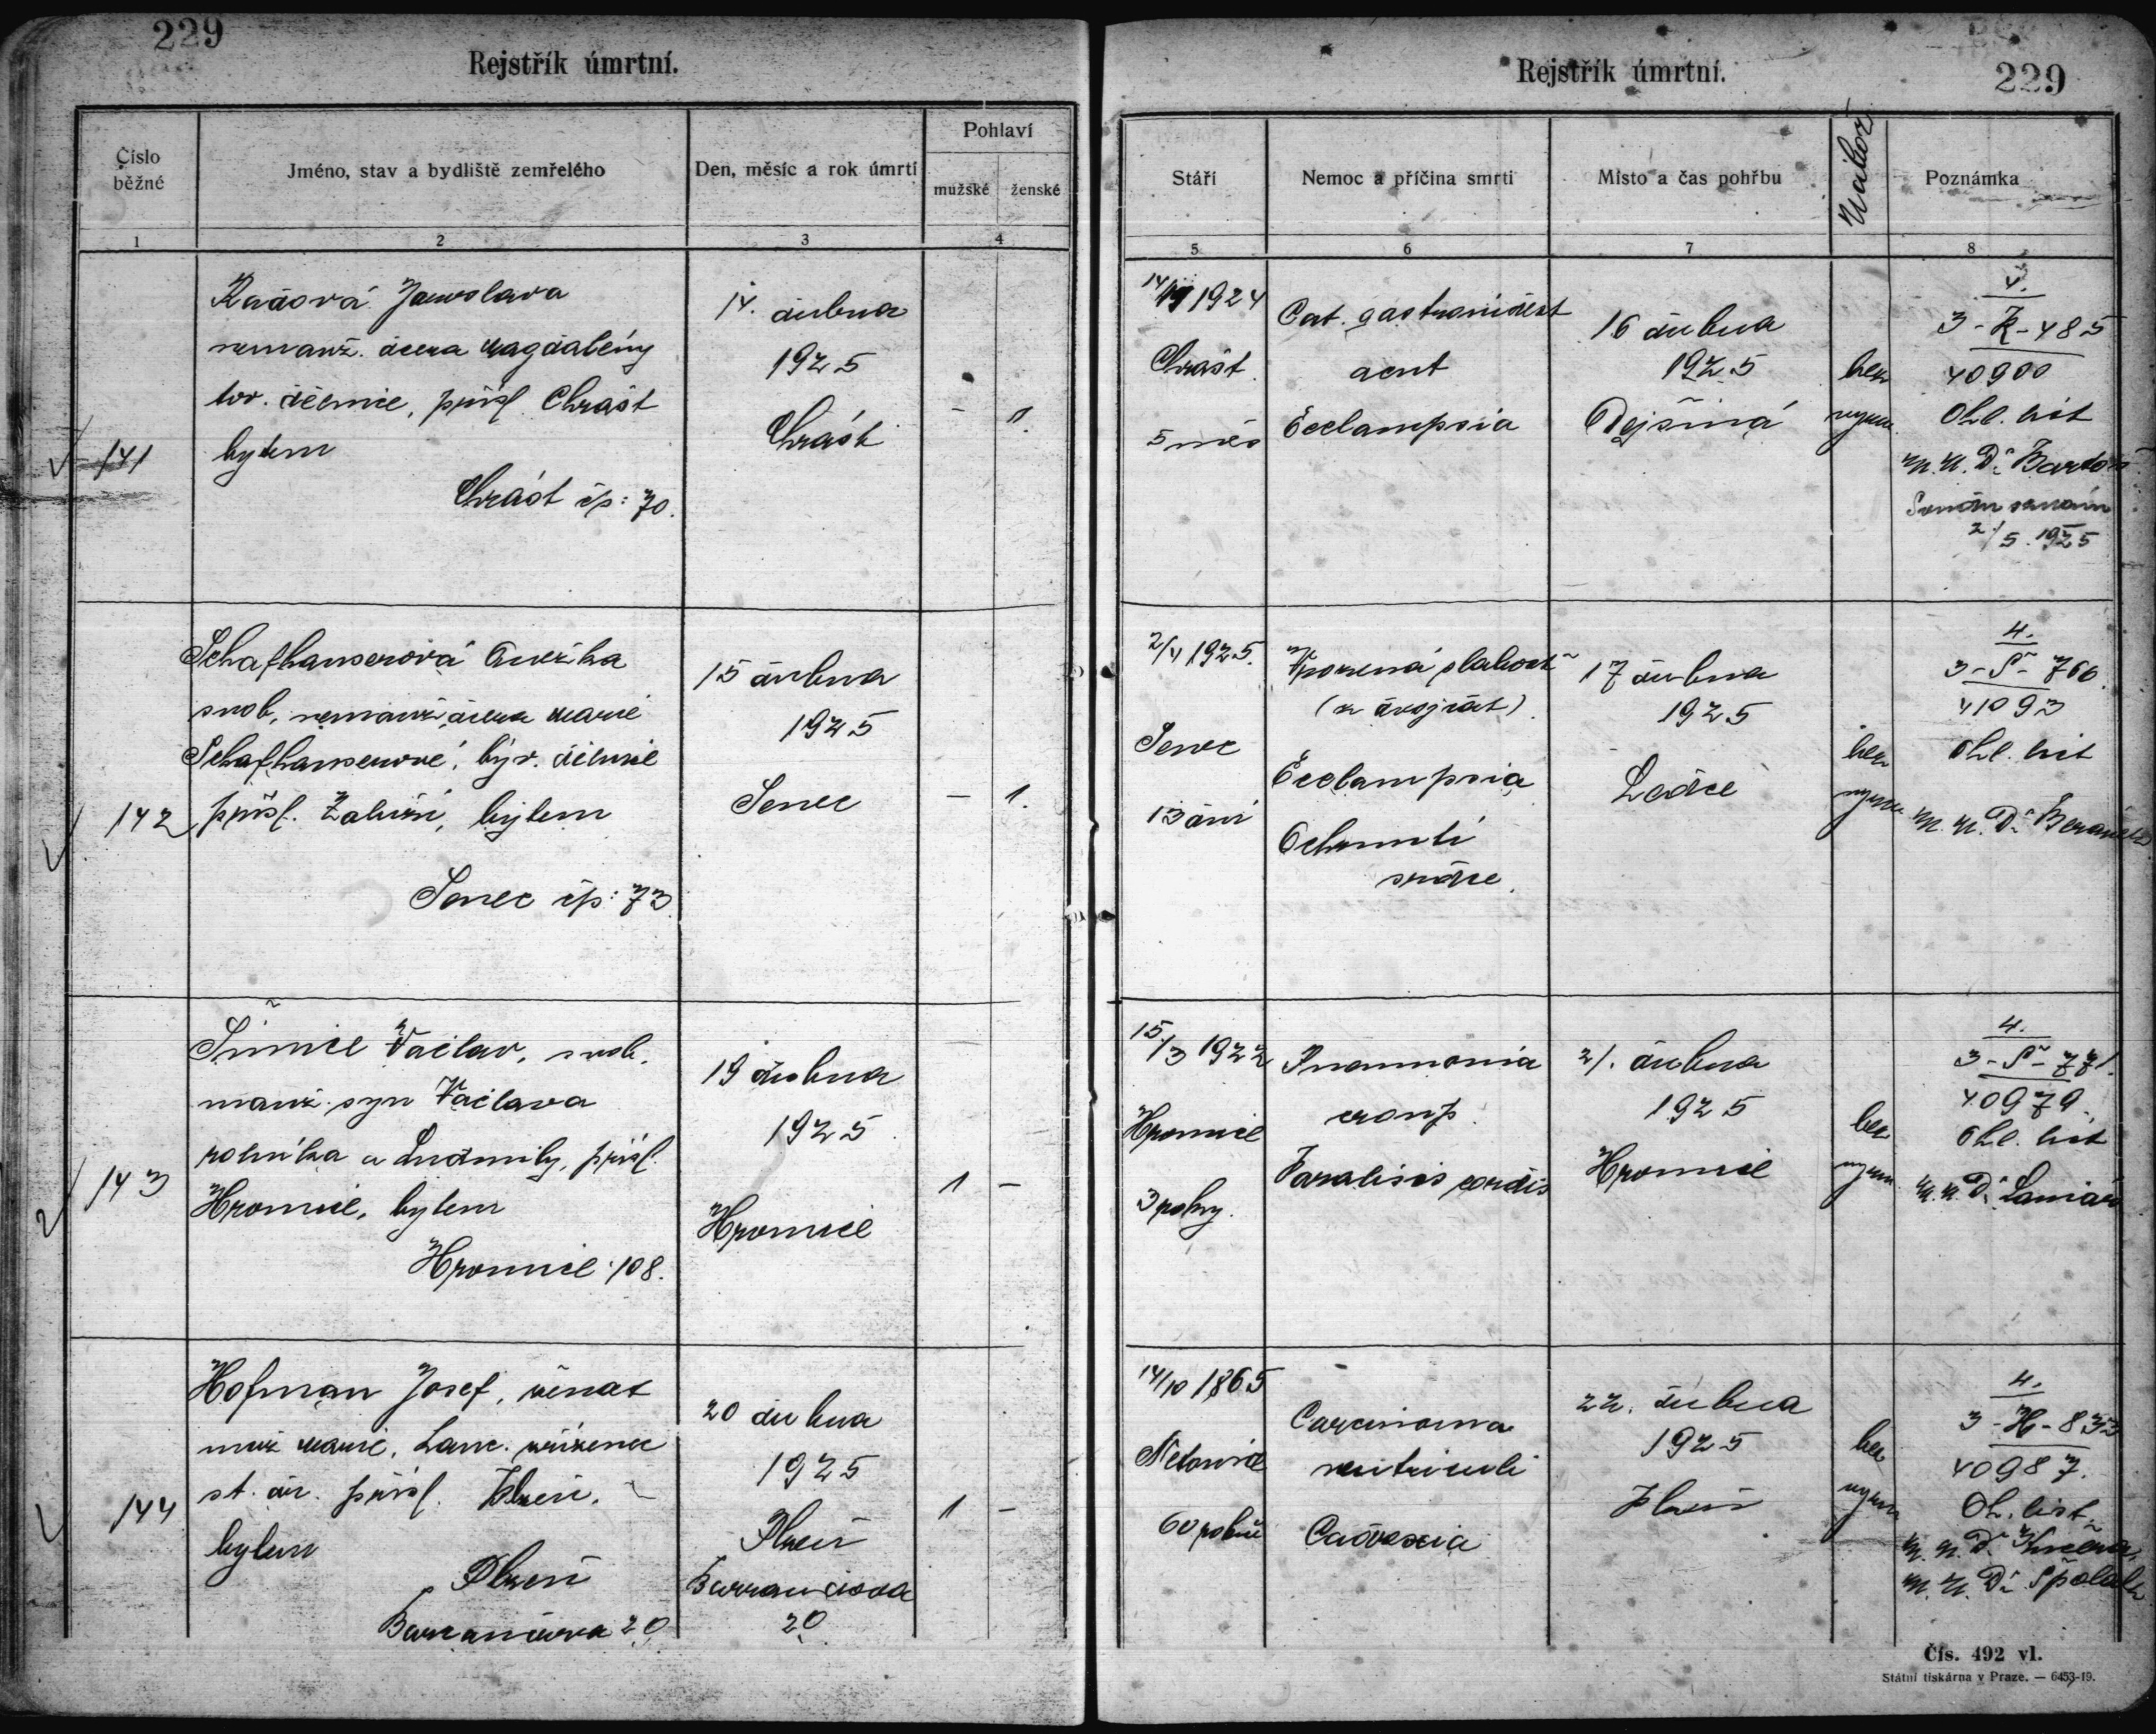 229
Rejstřík úmrtní.
Číslo běžné
Jméno, stav a bydliště zemřelého
Den, měsíc a rok úmrtí
Pohlaví
mužské
ženské
1
2
3
4
141
Jaroslava
nemanž. dcera Magdalény
tov. dělnice, přísl. Chrást
bytem
Chrást čp: 70.
14. dubna
1925
Chrást
-
1.
142
Schafhauserová Anežka
svob. nemanž. dcera Marie
Schafhauserové, býv. dělnice
přísl. Záluží, bytem
Senec čp: 73
15 dubna
1925
Senec
-
1.
143
Šimice Václav, svob.
manž. syn Václava
rolníka a Ludmily, přísl.
Hromice, bytem
Hromice 108.
19 dubna
1925
Hromice
1
-
144
Hofman Josef, ženat
muž Marie, zřízenec
st. dr. přísl. Plzeň,
bytem
Plzeň
20
20 dubna
1925
Plzeň
20
1
-
Rejstřík úmrtní.
229
Stáří
Nemoc a příčina smrti
Místo a čas pohřbu
Nábož
Poznámka
5
6
7
8
1924
Chrást
5 měs
Cat.
acut
Ecclampsia
16 dubna
1925
Dejšiná
bez
vyzn.
4.
3-R-485
40900
Ohl. list
M.U.Dr Bartoš
2/5. 1925
2/4 1925.
Senec
13 dní
Vrozená slabost
(z dvojčat)
Ecclampsia
Ochrnutí
srdce.
17 dubna
1925
Ledce
bez
vyzn.
4.
3-Š-766.
41093
Ohl. list
M.U.Dr
15/3 1922
Hromice
3 roky.
Pneumonia
croup.
Paralisis cordis
21. dubna
1925
Hromice
bez
vyzn.
4.
3-Š-771.
40979.
Ohl. list
M.U.Dr
14/10 1865
60 roků
Carcinoma
ventriculi
22. dubna
1925
Plzeň
bez
vyzn
4.
3-H-833
40987.
Oh. list
M.U.Dr
M.U.Dr
Čís. 492 vl.
Státní tiskárna v Praze. — 6453-19.